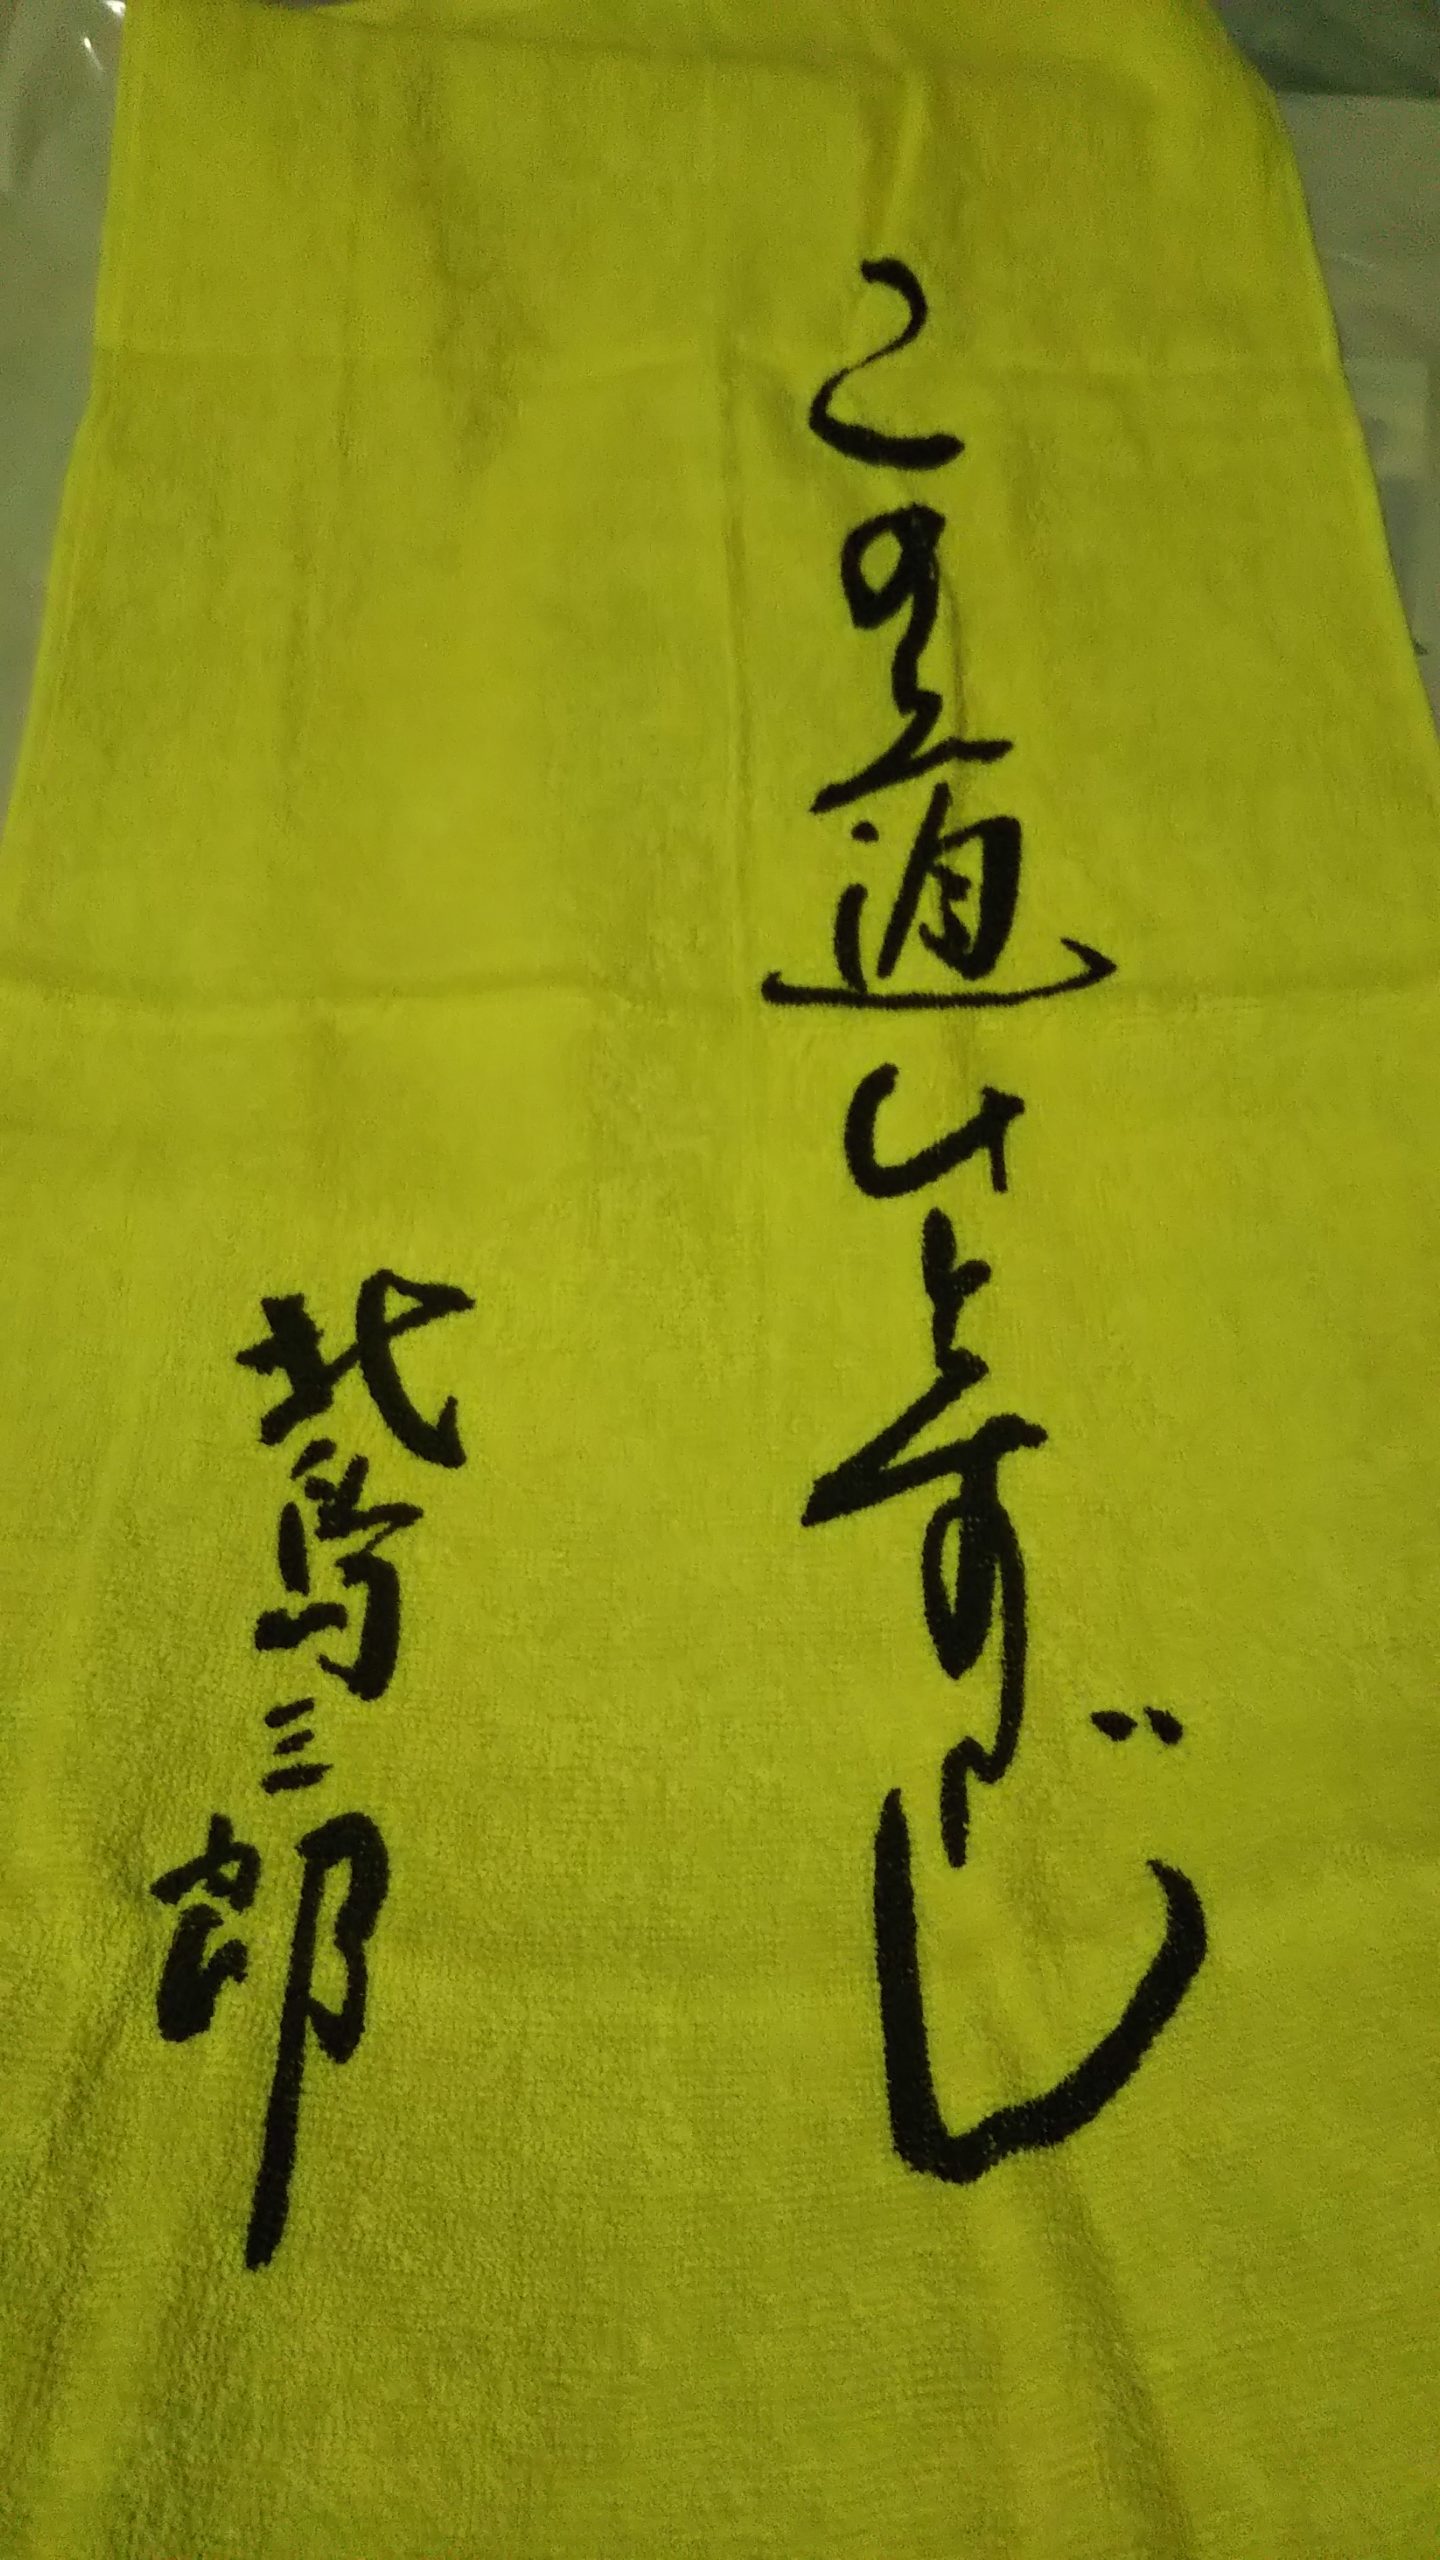 この道ひとすじ
北島三郎